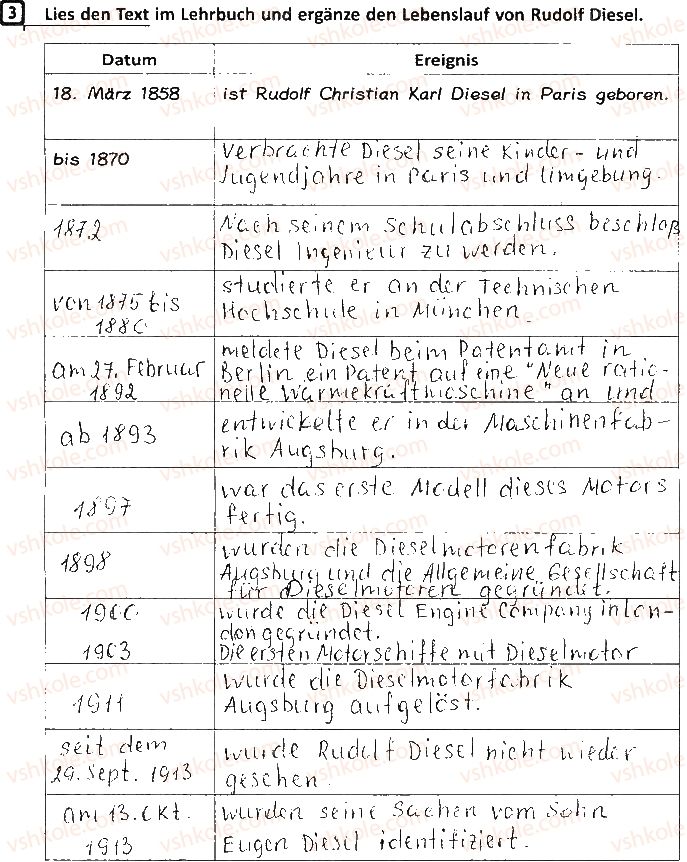 3 Lies den Text im Lehrbuch und ergänze den Lebenslauf von Rudolf Diesel.
Datum Ereignis
18. März 1858 ist Rudolf Christian Karl Diesel in Paris geboren.
bis 1870 Verbrachte Diesel seine Kinder- und
Jugendjahre in Paris und Umgebung.
1872 Nach seinem Schulabschluss beschloß
Diesel Ingenieur zu werden.
von 1875 bis studierte er an der Technischen
1880 Hochschule in München
am 27. Februar meldete Diesel beim Patentamt in
1892 Berlin ein Patent auf eine "Neue ratio-
nelle Wärmekraftmaschine" an und
ab 1893 entwickelte er in der Maschinenfab-
rik Augsburg.
1897 war das erste Modell dieses Motors
fertig.
1898 wurden die Dieselmotorenfabrik
Augsburg und die Allgemeine Gesellschaft
für Dieselmotoren gegründet.
1900 wurde die Diesel Engine Company in Lon-
don gegründet.
1903 Die ersten Motorschiffe mit Dieselmotor
1911 wurde die Dieselmotorfabrik
Augsburg aufgelöst.
seit dem wurde Rudolf Diesel nicht wieder
29. Sept. 1913 gesehen.
am 13. Okt. wurden seine Sachen vom Sohn
1913 Eugen Diesel identifiziert.
vshkole.com